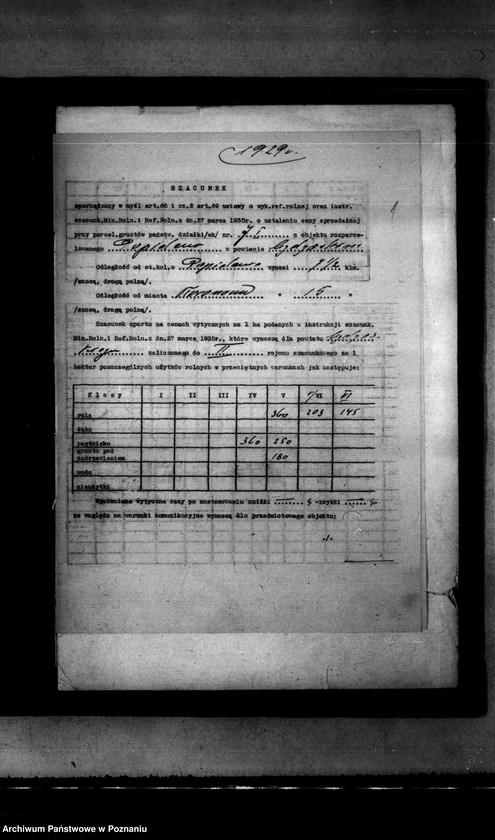 1929r.
1
SZACUNEK
sporządzony w myśl art.68 i cz.2 art.69 ustawy o wyk.ref.rolnej oraz instr.
szacunk.Min.Roln.i Ref.Roln.z dn.27 marca 1935r. o ustaleniu ceny sprzedażnej
przy parcel.gruntów państw. działki/ek/ nr. z objektu rozparce-
lowanego w powiecie
Odległość od st.kol.w wynosi 7 1/2 klm.
/szosą, drogą polną/.
Odległość od miasta " 15 "
/szosą, drogą polną/.
Szacunek oparto na cenach wytycznych za 1 ha podanych w instrukcji szacunk.
Min.Roln.i Ref.Roln.z dn.27 marca 1935r., które wynoszą dla powiatu
zaliczonego do II rejonu szacunkowego za 1
hektar poszczególnych użytków rolnych w przeciętnych warunkach jak następuje:
Klasy I II III IV V VI
rola 360 203 145
łąka
pastwisko 360 250
grunta pod
zadrzewieniem 180
woda
nieużytki
Wymienione wytyczne ceny po zastosowaniu zniżki % -zwyżki %
ze względu na warunki komunikacyjne wynoszą dla przedmiotowego objektu:
./.
Archiwum Państwowe w Poznaniu